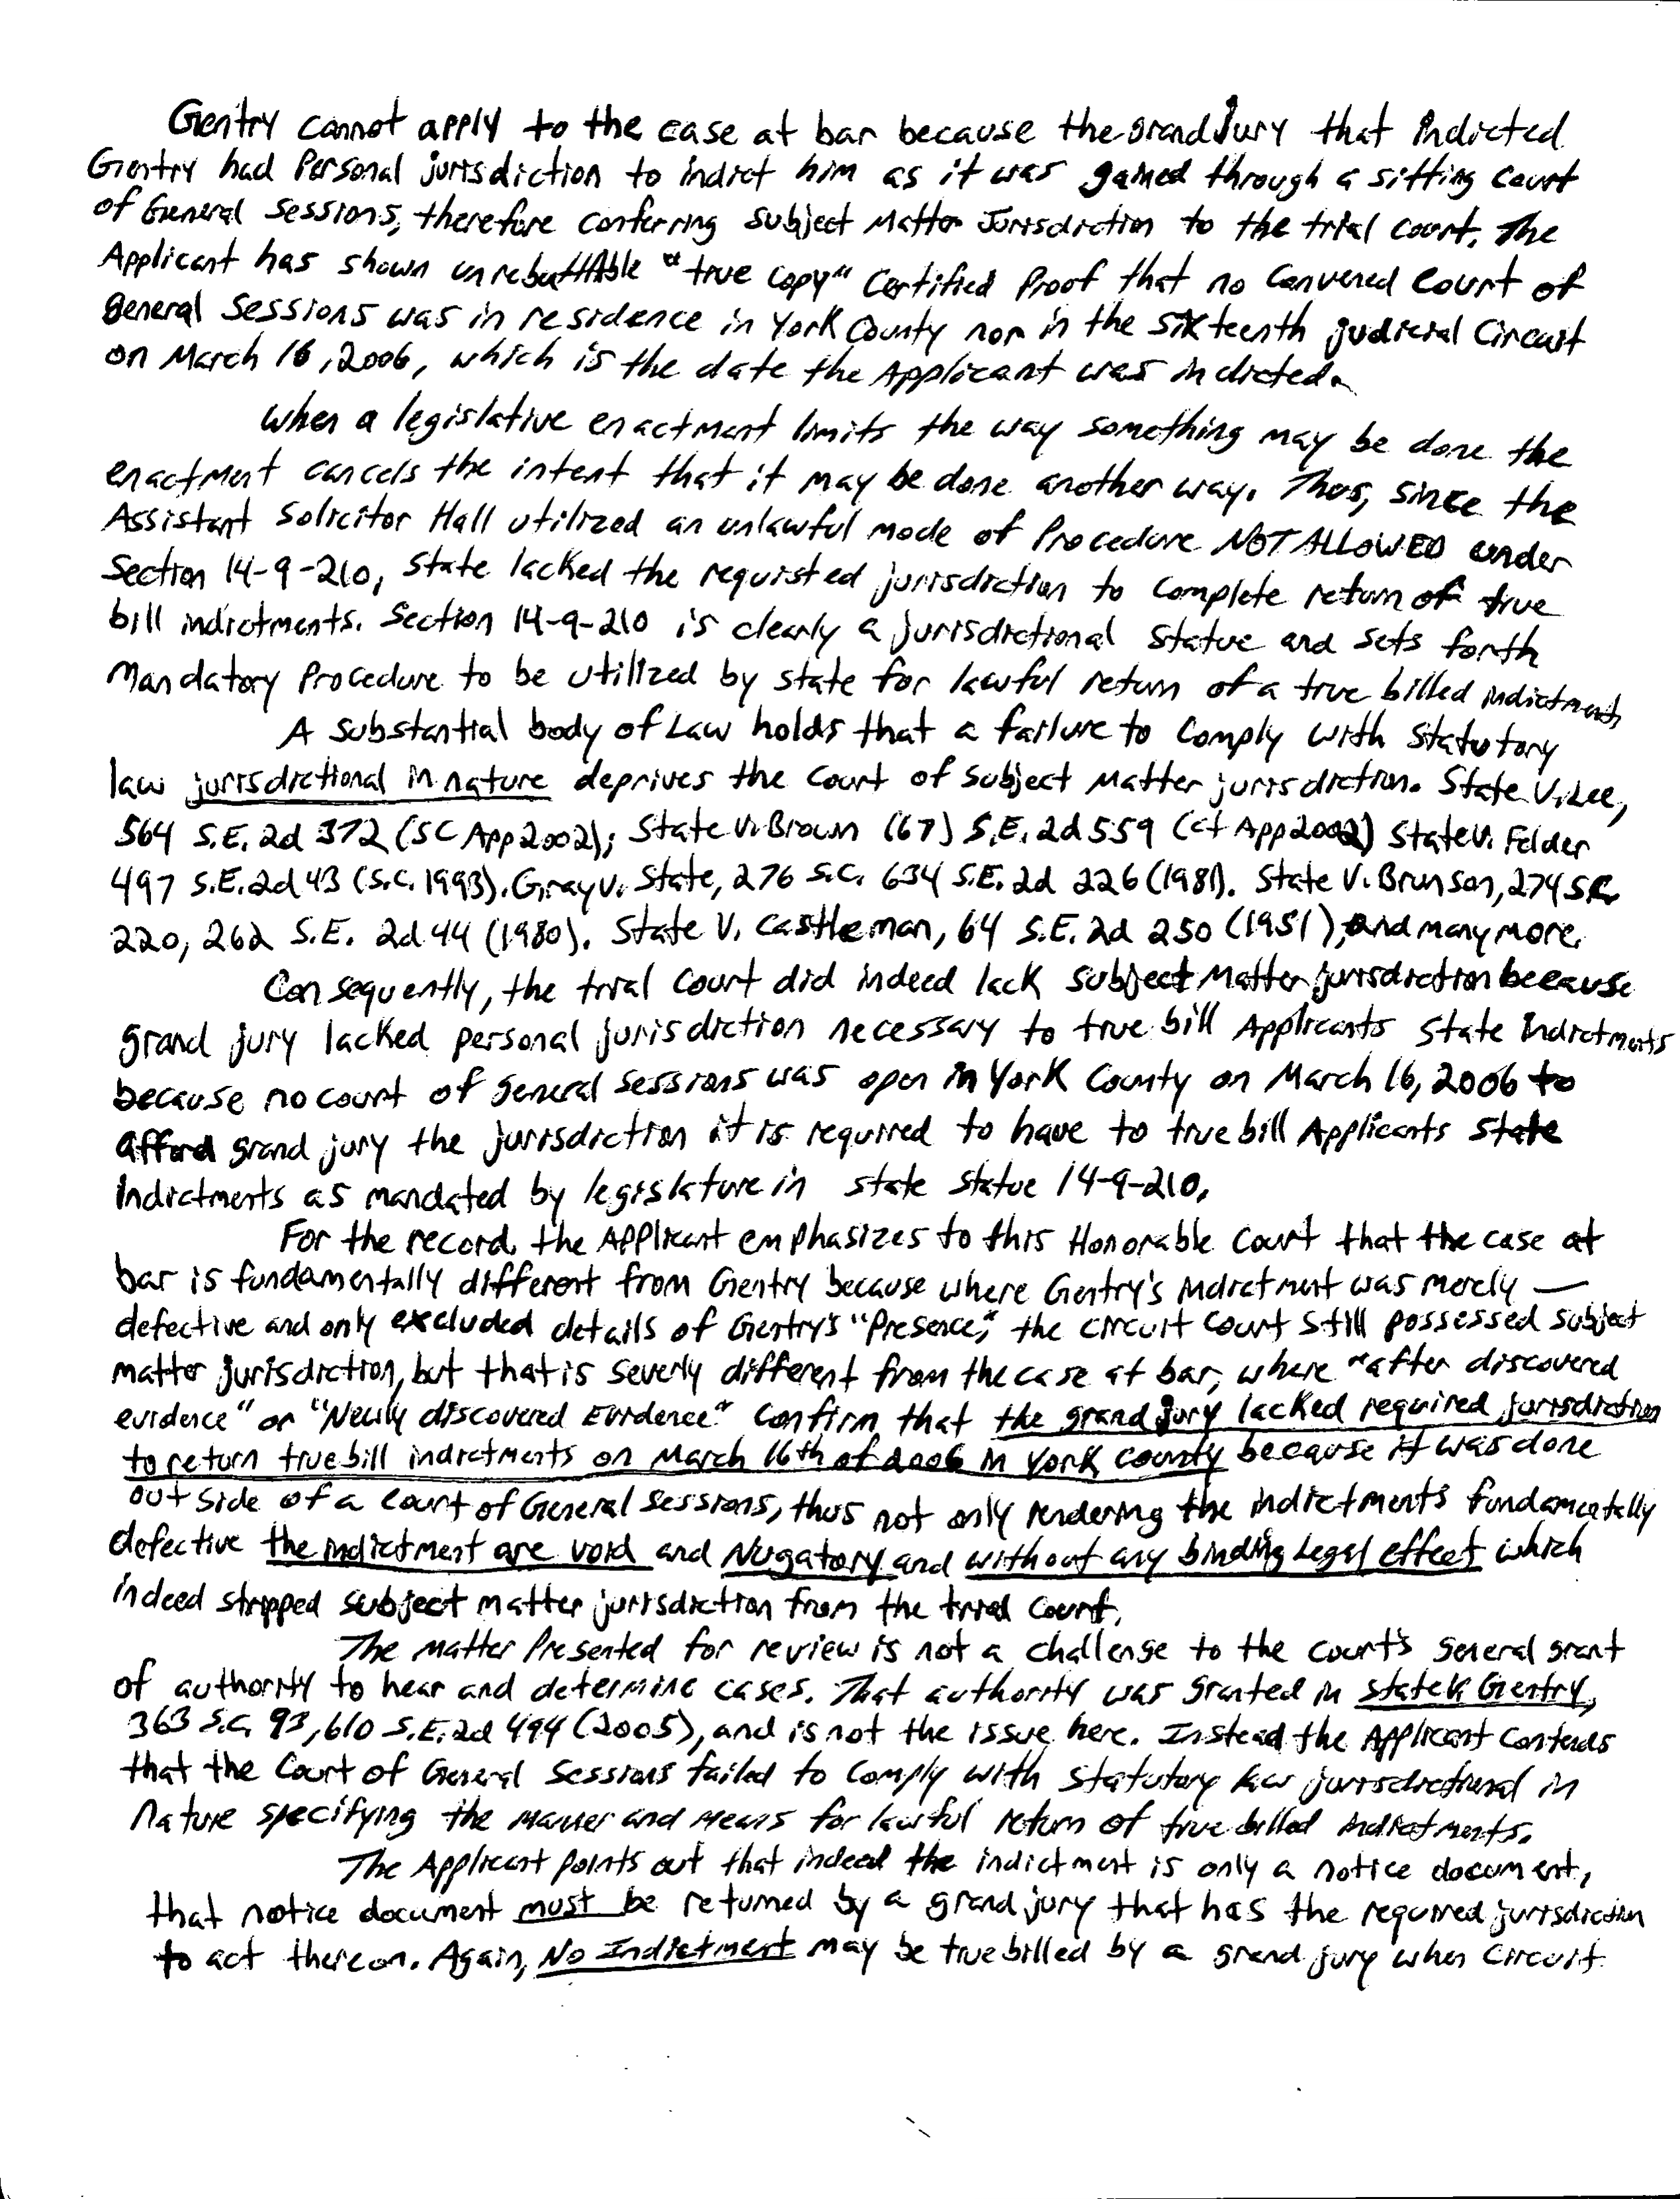 Gentry cannot apply to the case at bar because the grand Jury that Indicted
Gentry had Personal jurisdiction to indict him as it was gained through a sitting Court
of General Sessions, therefore conferring subject Matter Jurisdiction to the trial court. The
Applicant has shown unrebuttable "true copy" Certified Proof that no Convened Court of
General Sessions was in residence in York County nor in the sixteenth judicial Circuit
on March 16, 2006, which is the date the Applicant was indicted.
When a legislative enactment limits the way something may be done the
enactment cancels the intent that it may be done another way. Thus, since the
Assistant Solicitor Hall utilized an unlawful mode of Procedure NOT ALLOWED under
Section 14-9-210, State lacked the requisted jurisdiction to complete return of true
bill indictments. Section 14-9-210 is clearly a jurisdictional Statue and sets forth
Mandatory Procedure to be utilized by state for lawful return of a true billed indictments
A substantial body of Law holds that a failure to comply with Statutory
law jurisdictional in nature deprives the Court of Subject Matter jurisdiction. State V. Lee,
564 S.E. 2d 372 (SC App 2002); State V. Brown (67) S.E. 2d 559 (ct App 2002) State V. Felder
497 S.E. 2d 43 (S.C. 1993). Gray v. State, 276 S.C. 634 S.E. 2d 226 (1981). State V. Brunson, 274 SC
220, 262 S.E. 2d 44 (1980). State V. Castleman, 64 S.E. 2d 250 (1951), and many more.
Consequently, the trial Court did indeed lack subject Matter jurisdiction because
grand jury lacked personal jurisdiction necessary to true bill Applicants State Indictments
because no court of General Sessions was open in York County on March 16, 2006 to
afford grand jury the jurisdiction it is required to have to true bill Applicants state
Indictments as mandated by legislature in state statue 14-9-210.
For the record, the Applicant emphasizes to this Honorable Court that the case at
bar is fundamentally different from Gentry because where Gentry's indictment was merely —
defective and only excluded details of Gentry's "Presence," the circuit court still possessed subject
matter jurisdiction, but that is severly different from the case at bar, where "after discovered
evidence" or "Newly discovered Evidence" Confirm that the grand jury lacked required jurisdiction
to return true bill indictments on March 16th of 2006 in York County because it was done
outside of a Court of General Sessions, thus not only rendering the indictments fundamentally
defective the indictment are void and Nugatory and without any binding Legal effect which
indeed stripped subject matter jurisdiction from the trial Court.
The Matter Presented for review is not a challenge to the court's general grant
of authority to hear and determine cases. That authority was granted in State V. Gentry,
363 S.C. 93, 610 S.E. 2d 494 (2005), and is not the issue here. Instead the Applicant Contends
that the Court of General Sessions failed to comply with statutory law jurisdictional in
Nature specifying the Manner and Means for lawful return of true billed indictments.
The Applicant points out that indeed the indictment is only a notice document,
that notice document must be returned by a grand jury that has the required jurisdiction
to act thereon. Again, No Indictment may be true billed by a grand jury when Circuit